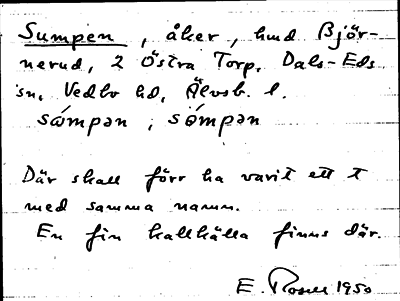 Sumpen, åker, hmd Björ-
nerud, 2 Östra Torp, Dals-Eds
sn, Vedbo hd, Älvsb. l.
sømpən ; sømpən
Där skall förr ha varit ett t
med samma namn.
En fin kallkälla finns där.
E. Rosell 1950